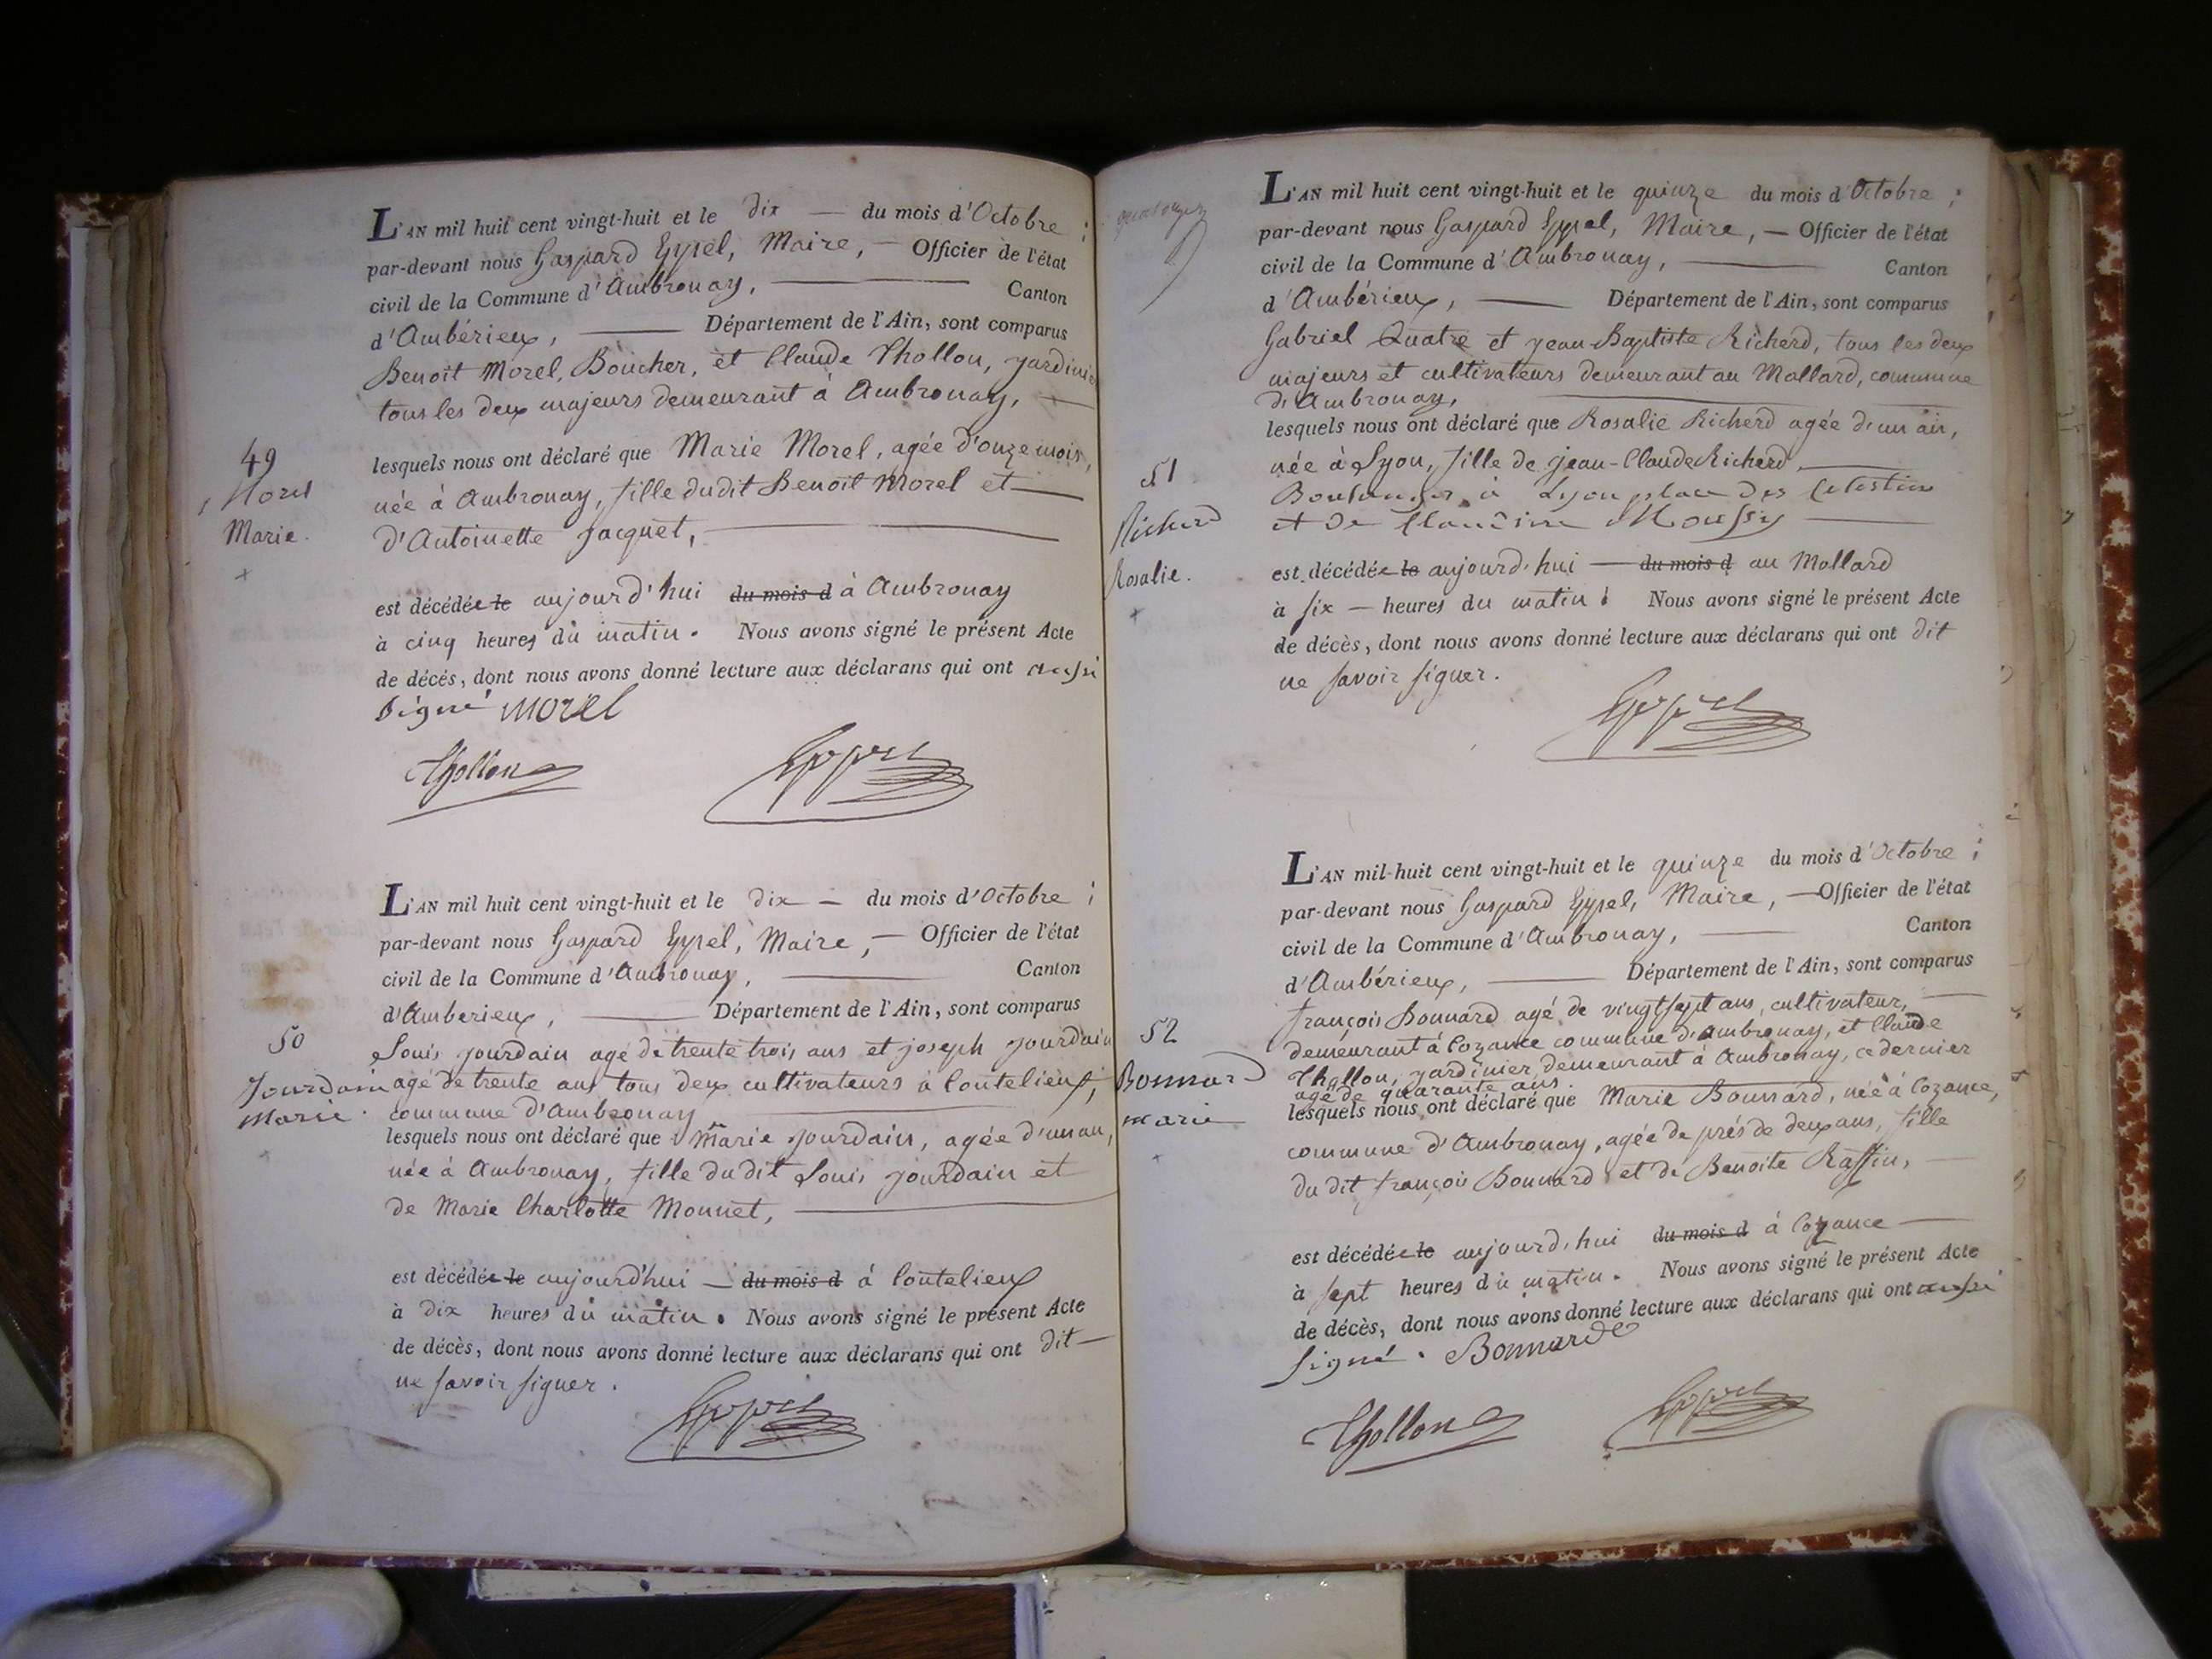 L'AN mil huit cent vingt-huit et le dix — du mois d'Octobre ;
par-devant nous Gaspard Eyssel, Maire, — Officier de l'état
civil de la Commune d'Ambronay, — Canton
d'Ambérieux, — Département de l'Ain, sont comparus
Benoit Morel, Boucher, et Claude Thollon, jardinier
tous les deux majeurs demeurant à Ambronay, —
49
Morel
Marie.
lesquels nous ont déclaré que Marie Morel, agée d'onze mois,
née à Ambronay, fille dudit Benoit Morel et —
d'Antoinette Jacquet, —
est décédée le aujourd'hui du mois d à Ambronay
à cinq heures du matin. Nous avons signé le présent Acte
de décés, dont nous avons donné lecture aux déclarans qui ont aussi
signé morel
Thollon
L'AN mil huit cent vingt-huit et le dix — du mois d'Octobre ;
par-devant nous Gaspard Eyssel, Maire, — Officier de l'état
civil de la Commune d'Ambronay, — Canton
d'Amberieux, — Département de l'Ain, sont comparus
50
Jourdain
marie.
Louis jourdain agé de trente trois ans et joseph jourdain
agé de trente ans tous deux cultivateurs à Coutelieux,
commune d'Ambronay —
lesquels nous ont déclaré que Marie jourdain, agée d'un an,
née à Ambronay, fille dudit Louis jourdain et
de Marie Charlotte Monnet, —
est décédée le aujourd'hui — du mois d à Coutelieux
à dix heures du matin. Nous avons signé le présent Acte
de décès, dont nous avons donné lecture aux déclarans qui ont dit —
ne savoir signer.
L'AN mil huit cent vingt-huit et le quinze du mois d'Octobre ;
par-devant nous Gaspard Eyssel, Maire, — Officier de l'état
civil de la Commune d'Ambronay, — Canton
d'Ambérieux, — Département de l'Ain, sont comparus
Gabriel Quatre et jean-Baptiste Richerd, tous les deux
majeurs et cultivateurs demeurant au Mollard, commune
d'Ambronay, —
51
Richerd
Rosalie.
lesquels nous ont déclaré que Rosalie Richerd agée d'un an,
née à Lyon, fille de jean-Claude Richerd, —
Boulanger à Lyon place des Celestins
et de Claudine Moussy —
est décédée le aujourd'hui — du mois d au Mollard
à six — heures du matin ; Nous avons signé le présent Acte
de décès, dont nous avons donné lecture aux déclarans qui ont dit
ne savoir signer.
L'AN mil-huit cent vingt-huit et le quinze du mois d'Octobre ;
par-devant nous Gaspard Eyssel, Maire, — Officier de l'état
civil de la Commune d'Ambronay, — Canton
d'Ambérieux, — Département de l'Ain, sont comparus
52
Bonnard
marie
françois Bonnard agé de vingt sept ans, cultivateur, —
demeurant à Cozance commune d'ambronay, et Claude
Thollon, jardinier, demeurant à Ambronay, ce dernier
agé de quarante ans.
lesquels nous ont déclaré que Marie Bonnard, née à Cozance,
commune d'Ambronay, agée de près de deux ans, fille
du dit françois Bonnard et de Benoite Raffin, —
est décédée le aujourd'hui du mois d à Cozance —
à sept heures du matin. Nous avons signé le présent Acte
de décès, dont nous avons donné lecture aux déclarans qui ont aussi
signé. Bonnard
Thollon